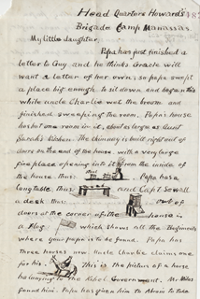 Head Quarters Howard's
Brigade Camp Manassas.
My little daughter,
Papa has just finished a
letter to Guy, and he thinks Gracie will
want a letter of her own; so papa has got
a place big enough to sit down, and began this
while uncle Charlie wet the broom and
finished sweeping the room. Papa's house
has but one room in it, about as large as Aunt
kitchen. The chimney is built right out of
doors at the end of the house with a very large
fire place opening into it from the inside of
the house: thus Papa has a
long table: thus and Capt Sewall
a desk thus Out of
doors at the corner of the house is
a flag which shows all the Regiments
where your papa is to be found. Papa has
three horses now Uncle Charlie claims one
for his. This is the picture of a horse
belonging to the Rebel Government. Mr Miles
found him. Papa has given him to Albion to take